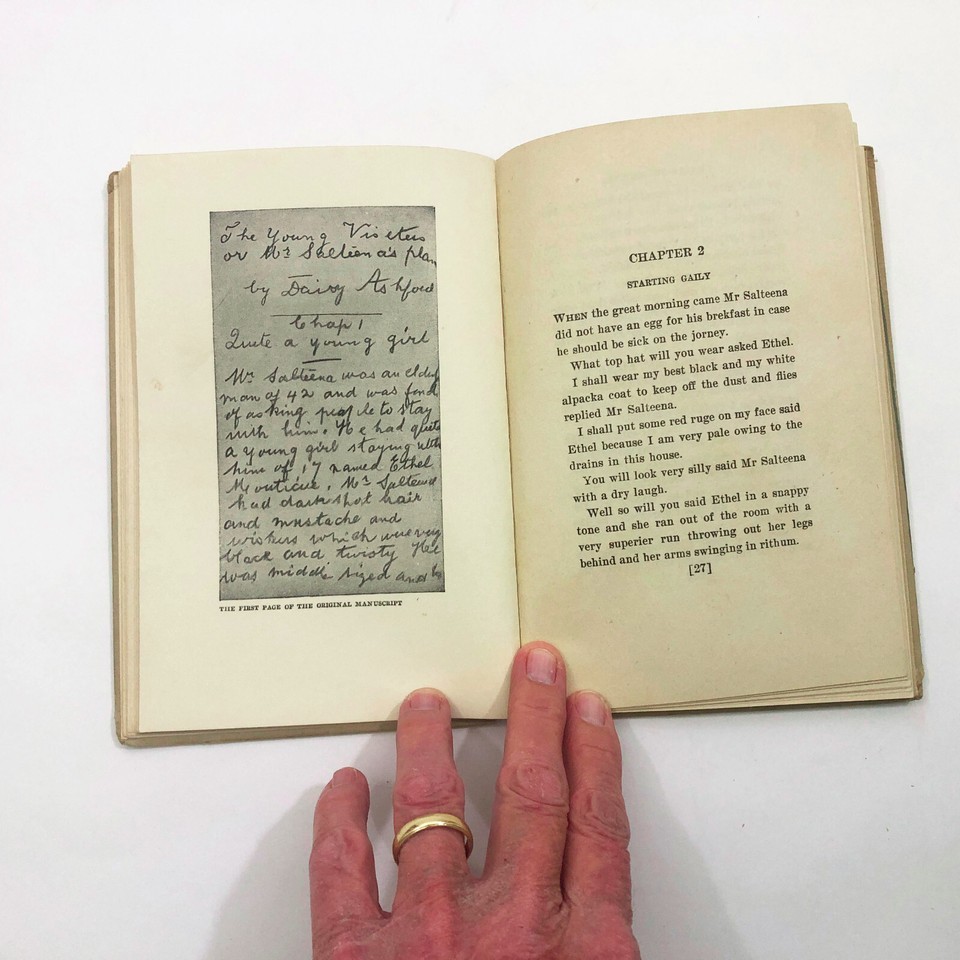 The Young Visiters
or Mr Salteena's plan
by Daisy Ashford
Chap 1
Quite a young girl
Mr Salteena was an elderly
man of 42 and was fond
of asking peaple to stay
with him. He had quite
a young girl staying with
him of 17 named Ethel
Monticue. Mr Salteena
had dark short hair
and mustache and
wiskers which were very
black and twisty He
was middle sized and
THE FIRST PAGE OF THE ORIGINAL MANUSCRIPT
CHAPTER 2
STARTING GAILY
WHEN the great morning came Mr Salteena
did not have an egg for his brekfast in case
he should be sick on the jorney.
What top hat will you wear asked Ethel.
I shall wear my best black and my white
alpacka coat to keep off the dust and flies
replied Mr Salteena.
I shall put some red ruge on my face said
Ethel because I am very pale owing to the
drains in this house.
You will look very silly said Mr Salteena
with a dry laugh.
Well so will you said Ethel in a snappy
tone and she ran out of the room with a
very superier run throwing out her legs
behind and her arms swinging in rithum.
[27]